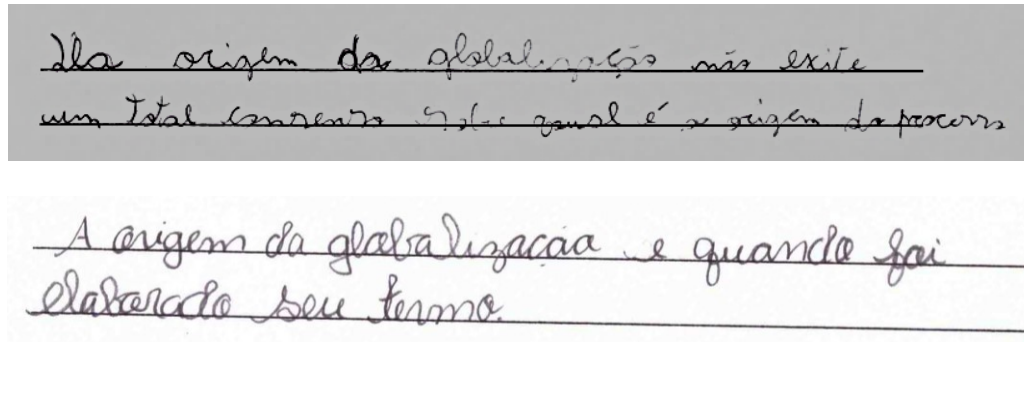 Na origem da globalização não exite
um total consenso sobre qual é a origem do
A origem da globalização e quando foi
elaborado seu termo.